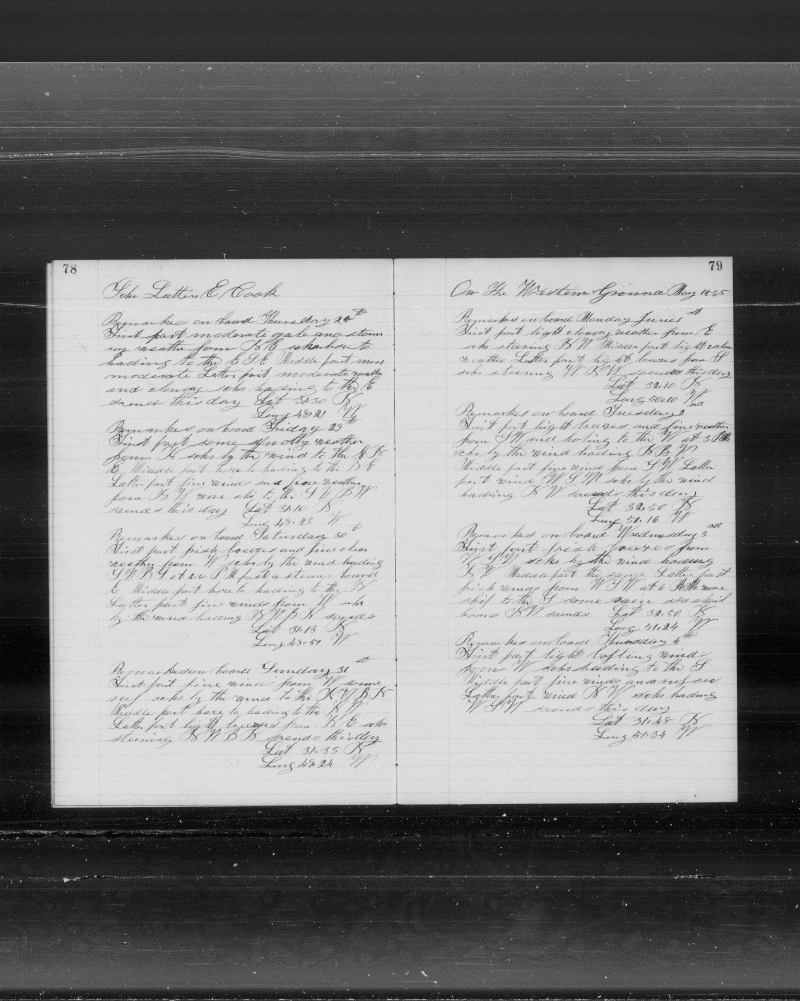 78
Schr Lottie E Cook
Remarks on board Thursday 28th
First part moderate gale and storm
ing weather from N E schr hove to
heading to the E S E Middle part more
moderate Latter part moderate weather
and cloudy schr heading to the E
so ends this day Lat 31.30 N
Long 48.21 W
Remarks on board Friday 29th
First part some squally weather
from N schr by the wind to the E N
E Middle part hove to heading to the N E
Latter part fine winds and fine weather
from N W wore schr to the S W B W
so ends this day Lat 31.10 N
Long 48.23 W
Remarks on board Saturday 30th
First part fresh breezes and fine clear
weather from W schr by the wind heading
S W B S at PM past a steamer bound
E Middle part hove to heading to the N
Latter part fine winds from W schr
by the wind heading N W B N so ends
Lat 31.13 N
Long 48.51 W
Remarks on board Sunday 31st
First part fine winds from W some
sea schr by the wind to the N W B N
Middle part hove to heading to the N W
Latter part light breezes from N E schr
steering N W B N so ends this day
Lat 31.55 N
Long 49.24 W
79
On The Western Ground May 1885
Remarks on board Monday June 1st
First part light cloudy weather from E
schr steering N W Middle part light calm
weather Latter part light breeze from S
schr steering W N W so ends this day
Lat 32.10 N
Long 50.10 W
Remarks on board Tuesday 2nd
First part light breezes and fine weather
from S W and holing to the W at 3 PM
schr by the wind heading N B W
Middle part fine wind from S W Latter
part wind W S W schr by the wind
heading N W so ends this day
Lat 32.50 N
Long 51.16 W
Remarks on board Wednesday 3rd
First part fresh breezes from
W S W schr by the wind heading
N W Middle part the same Latter part
fresh winds from W S W at 6 AM wore
ship to the S some sea
N W so ends Lat 32.50 N
Long 51.24 W
Remarks on board Thursday 4th
First part light winds
from W schr heading to the S
Middle part fine winds and sea
Latter part wind N W schr heading
W S W so ends this day
Lat 31.48 N
Long 51.34 W